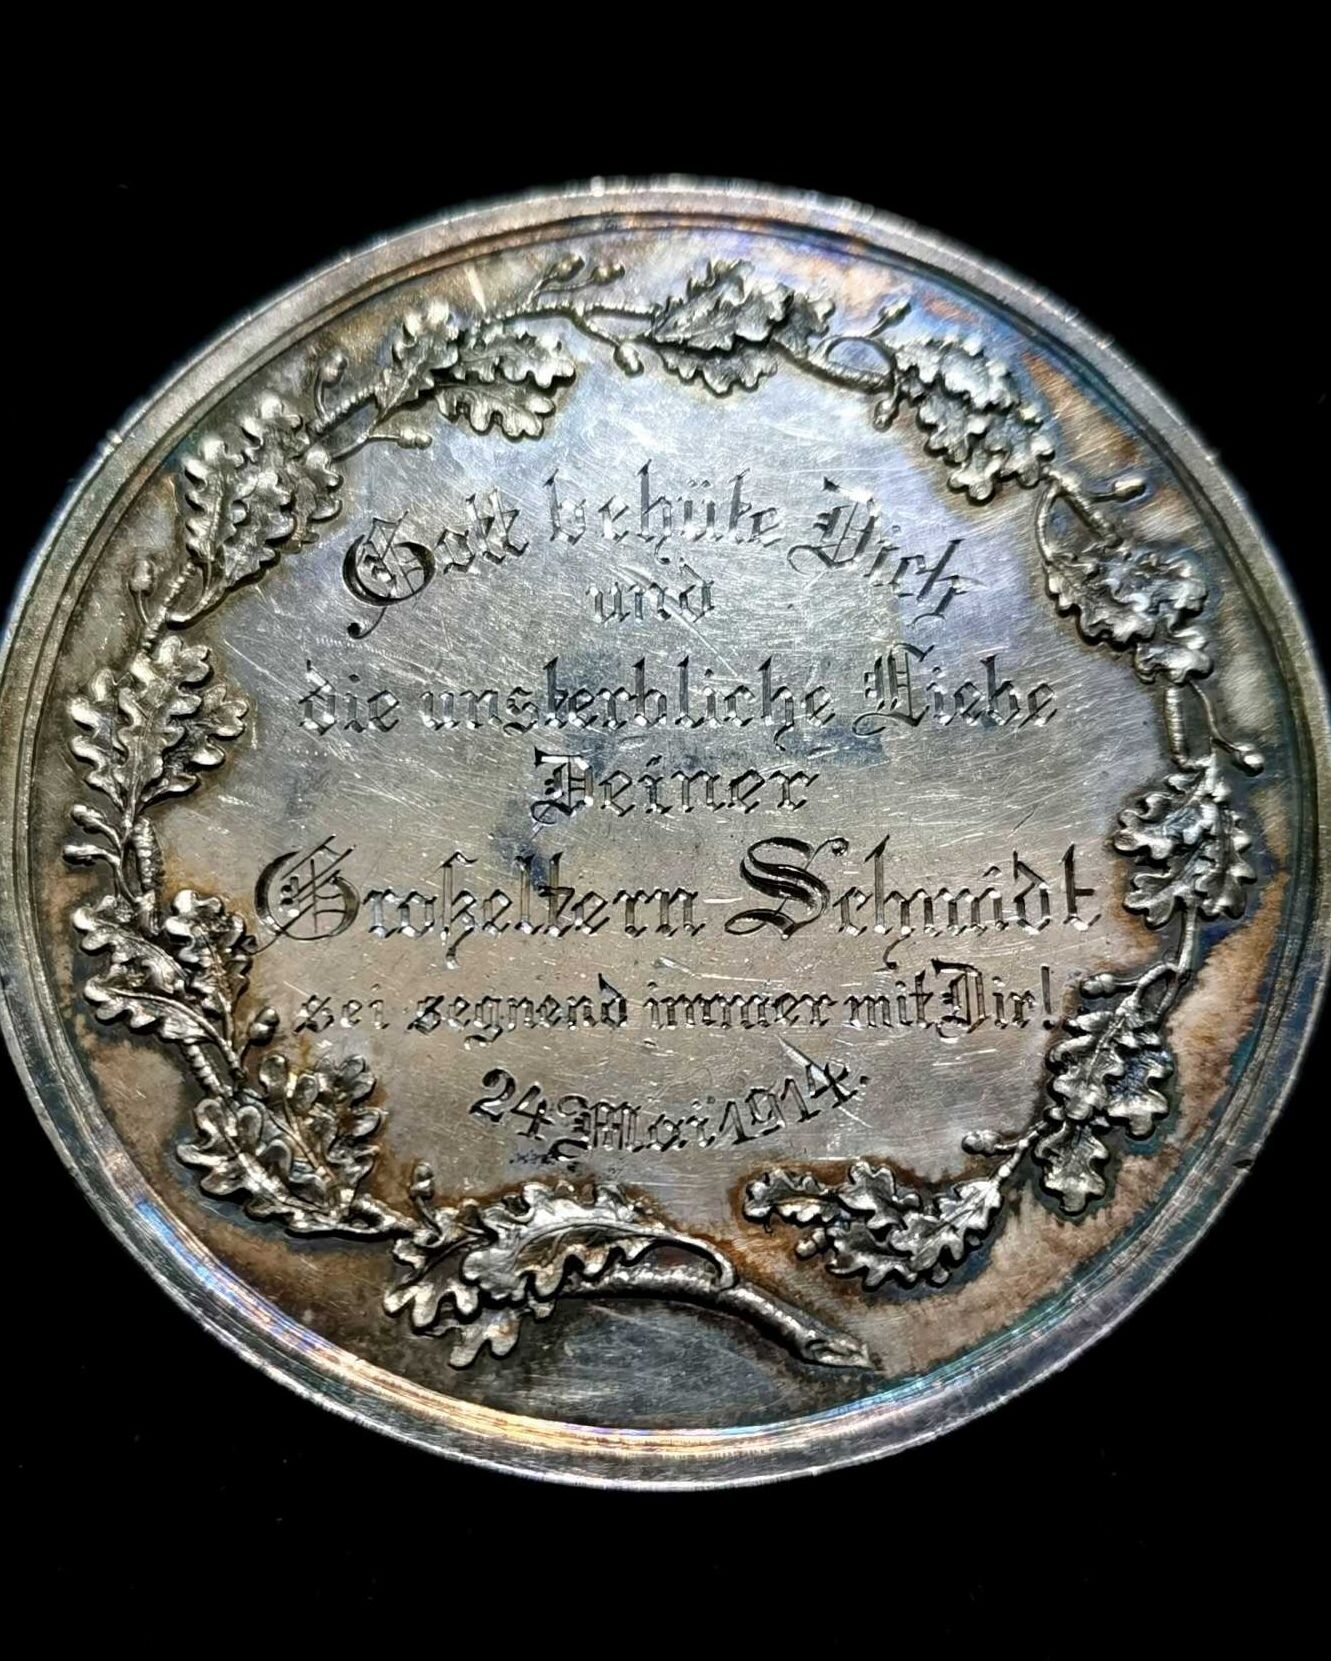 Gott behüte Dich
und
die unsterbliche Liebe
Deiner
Großeltern Schmidt
sei segnend immer mit Dir!
24 Mai 1914.